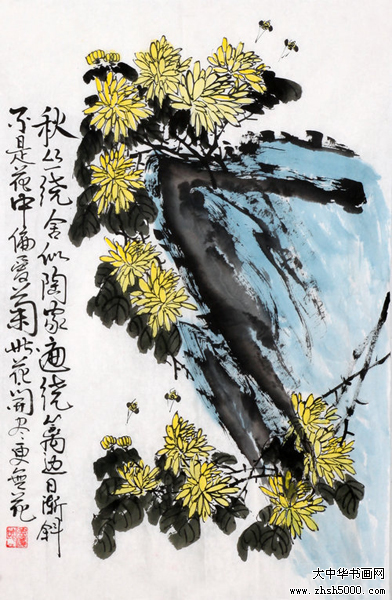 秋丛绕舍似陶家遍绕篱边日渐斜
不是花中偏爱菊此花開尽更無花
大中华书画网
www.zhsh5000.com